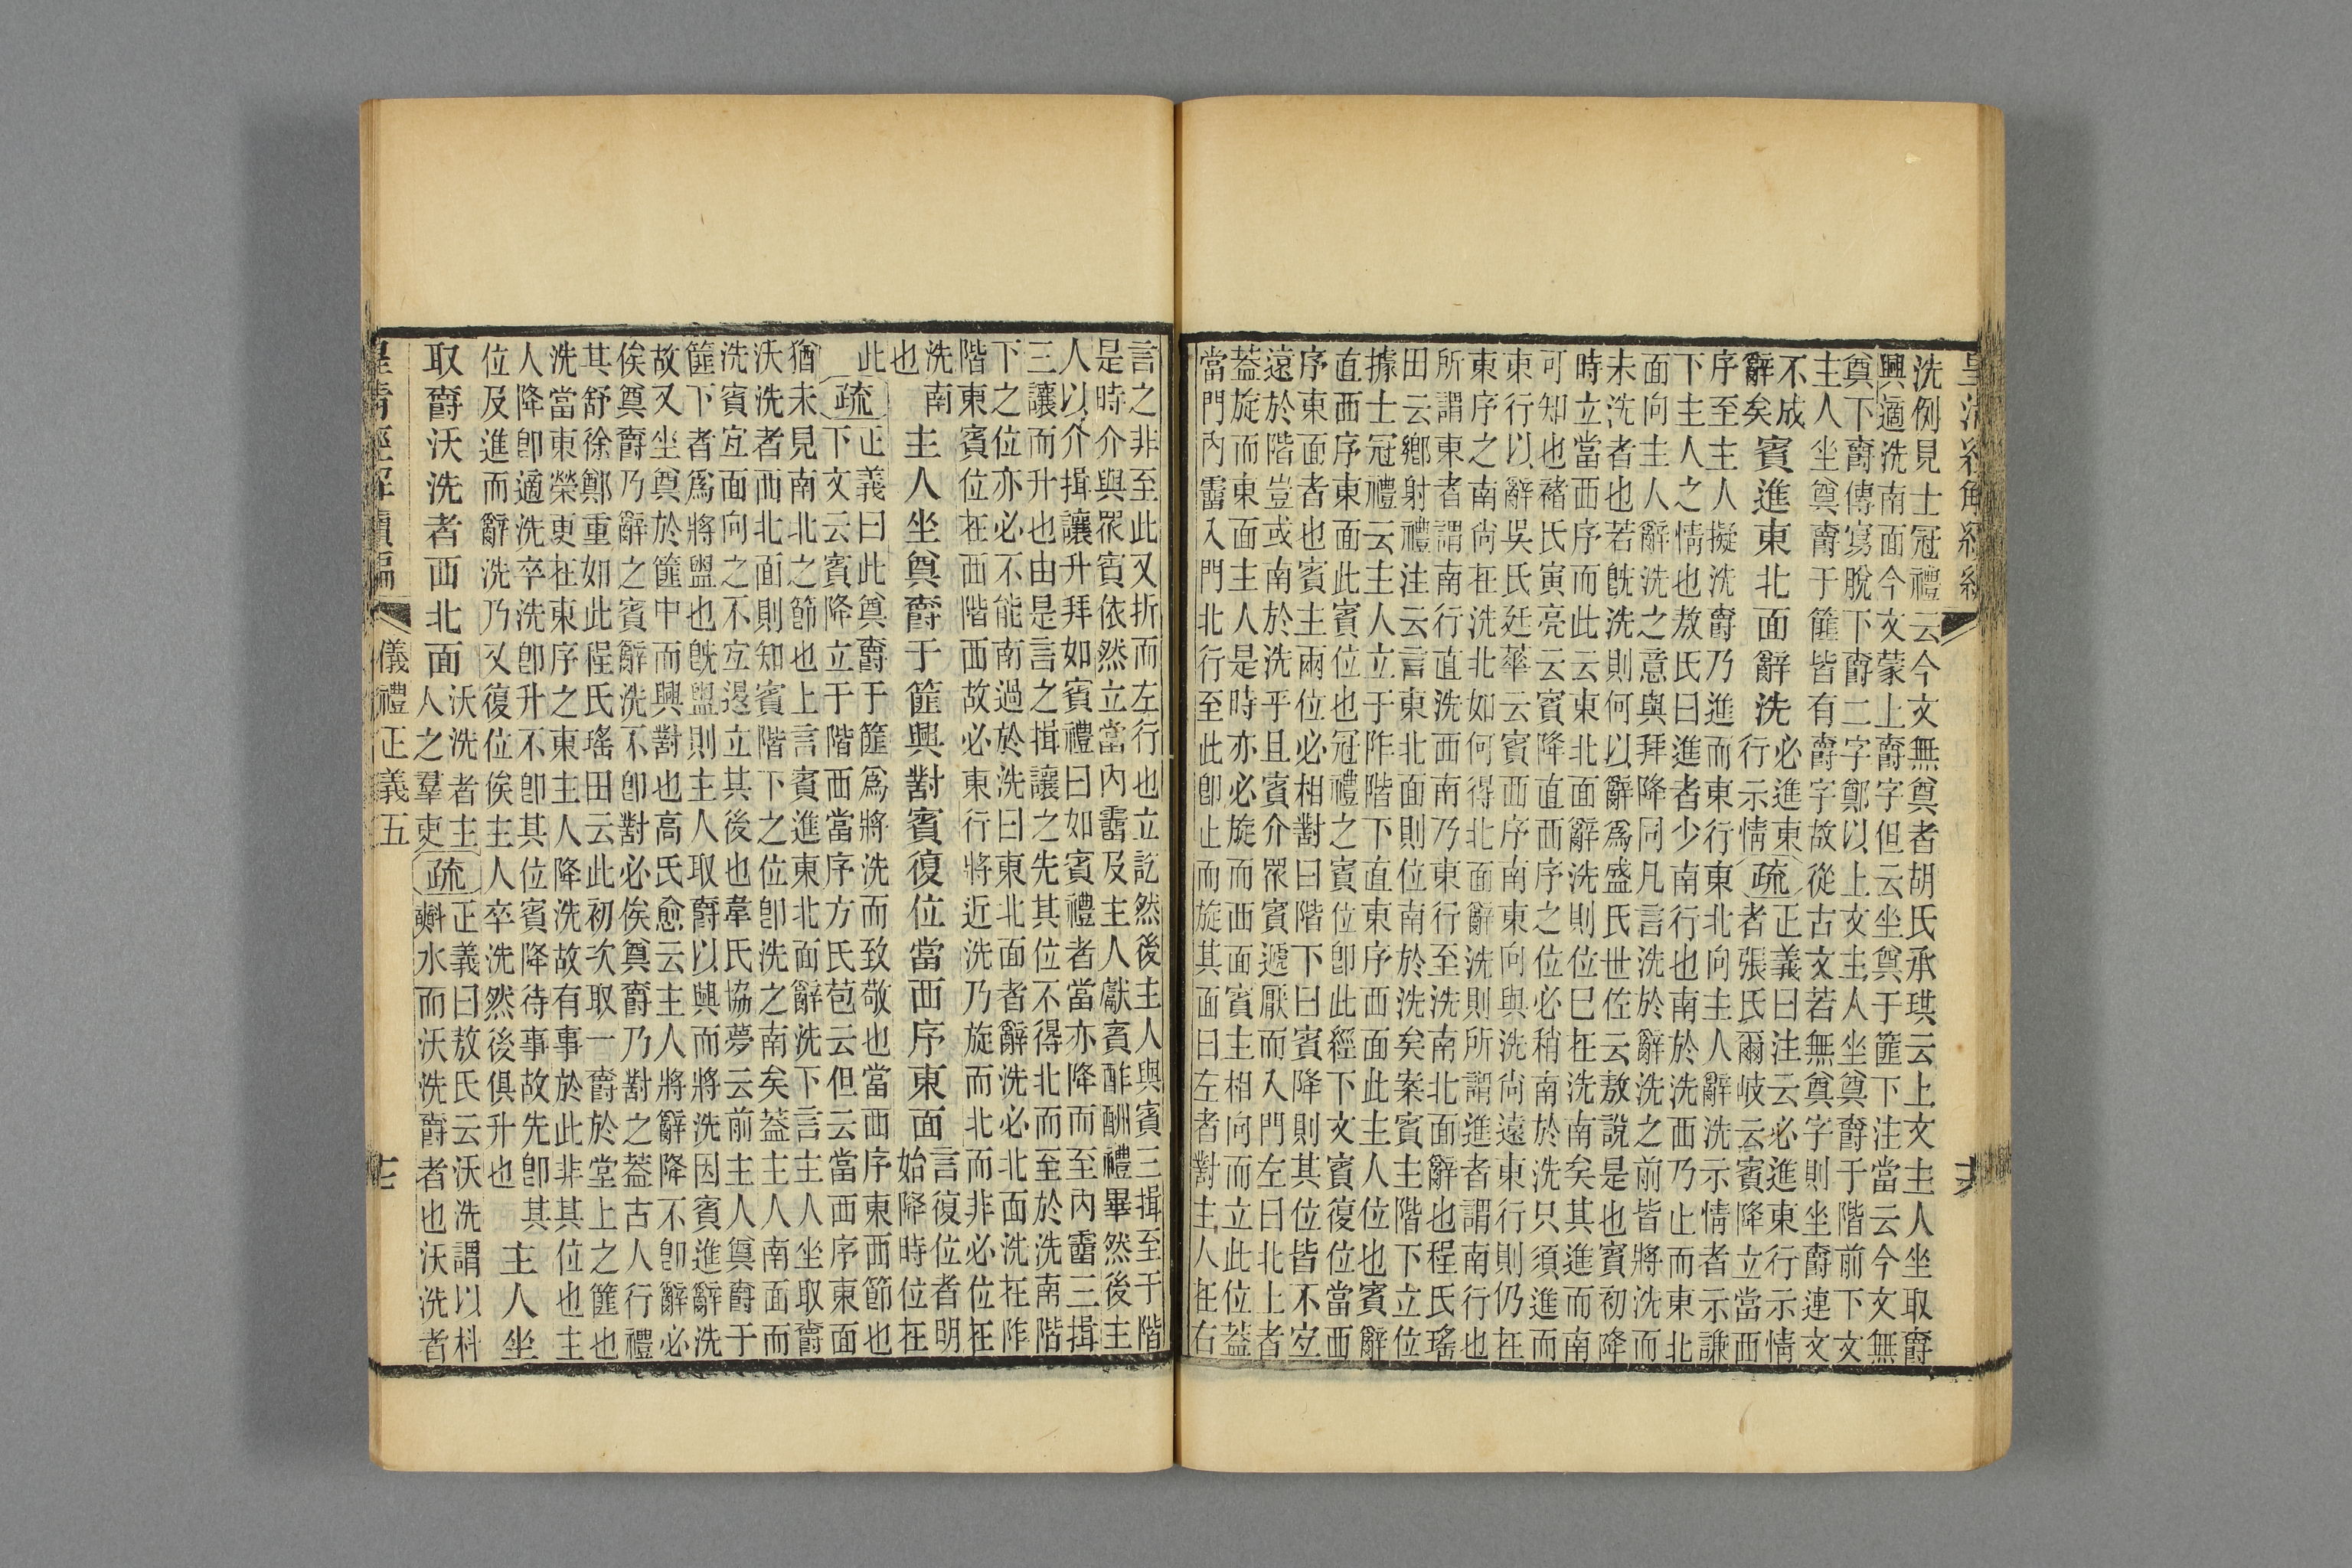 洗例見士冠禮云今文無奠者胡氏承珙云上文主人坐取爵
興適洗南面今文蒙上爵字但云坐奠于篚下注當云今文無
奠下爵傳寫脫下爵二字鄭以上文主人坐奠爵于階前下文
主人坐奠爵于篚皆有爵字故從古文若無奠字則坐爵連文
不成
辭矣
賓進東北面辭洗
必進東
行示情
疏
正義曰注云必進東行示情
者張氏爾岐云賓降立當西
序至主人擬洗爵乃進而東行東北向主人辭洗示情者示謙
下主人之情也敖氏曰進者少南行也南於洗西乃止而東北
面向主人辭洗之意與拜降同凡言洗於辭洗之前皆將洗而
未洗者也若旣洗則何以辭爲盛氏世佐云敖說是也賓初降
時立當西序而此云東北面辭洗則位巳在洗南矣其進而南
可知也褚氏寅亮云賓降直西序之位必稍南於洗只須進而
東行以辭吳氏廷華云賓西序南東向與洗尚遠東行則仍在
東序之南尚在洗北如何得北面辭洗則所謂進者謂南行也
所謂東者謂南行直洗西南乃東行至洗南北面辭也程氏瑤
田云鄉射禮注云言東北面則位南於洗矣案賓主階下立位
據士冠禮云主人立于阼階下直東序西面此主人位也賓辭
直西序東面此賓位也冠禮之賓位卽此經下文賓復位當西
序東面者也賓主兩位必相對曰階下曰賓降則其位皆不宜
遠於階豈或南於洗乎且賓介眾賓遞厭而入門左曰北上者
蓋旋而東面主人是時亦必旋而西面賓主相向而立此位蓋
當門內霤入門北行至此卽止而旋其面曰左者對主人在右
言之非至此又折而左行也立訖然後主人與賓三揖至于階
是時介與眾賓依然立當內霤及主人獻賓酢酬禮畢然後主
人以介揖讓升拜如賓禮曰如賓禮者當亦降而至內霤三揖
三讓而升也由是言之揖讓之先其位不得北而至於洗南階
下之位亦必不能南過於洗曰東北面者辭洗必北面洗在阼
階東賓位在西階西故必東行將近洗乃旋而北而非必位在
洗南
也
主人坐奠爵于篚興對賓復位當西序東面
言復位者明
始降時位在
此
疏
正義曰此奠爵于篚爲將洗而致敬也當西序東西節也
下文云賓降立于階西當序方氏苞云但云當西序東面
猶未見南北之節也上言賓進東北面辭洗下言主人坐取爵
沃洗者西北面則知賓階下之位卽洗之南矣蓋主人南面而
洗賓宜面向之不宜遏立其後也韋氏協夢云前主人奠爵于
篚下者爲將盥也旣盥則主人取爵以興而將洗因賓進辭洗
故又坐奠於篚中而興對也高氏愈云主人將辭降不卽辭必
俟奠爵乃辭之賓辭洗不卽對必俟奠爵乃對之蓋古人行禮
其舒徐鄭重如此程氏瑤田云此初次取一爵於堂上之篚也
洗當東榮更在東序之東主人降洗故有事於此非其位也主
人降卽適洗卒洗卽升不卽其位賓降待事故先卽其
位及進而辭洗乃又復位俟主人卒洗然後俱升也
主人坐
取爵沃洗者西北面
沃洗者主
人之羣吏
疏
正義曰敖氏云沃洗謂以枓
㪺水而沃洗爵者也沃洗者
皇清經解續編
儀禮正義五